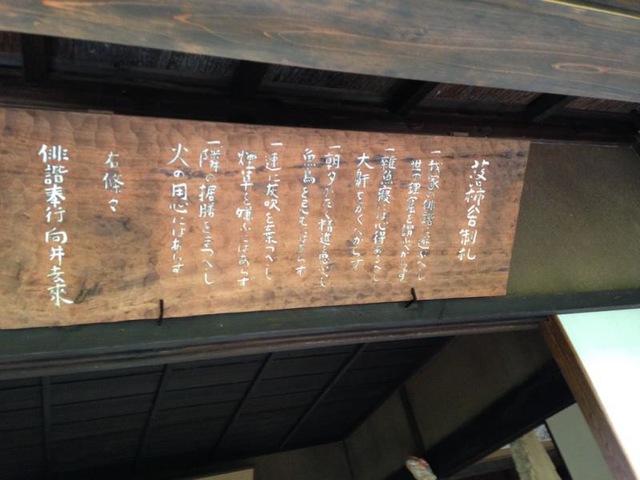 落柿舎制札
一我家の俳諧に遊ぶべし
世の理屈を謂ふべからず
一雑魚寝には心得あるべし
大鼾をかくべからず
一朝夕かたく精進を思ふべし
魚鳥を忌むにはあらず
一速に灰吹を棄つべし
煙草を嫌ふにはあらず
一隣の据膳をまつべし
火の用心にはあらず
右條々
俳諧奉行 向井去来